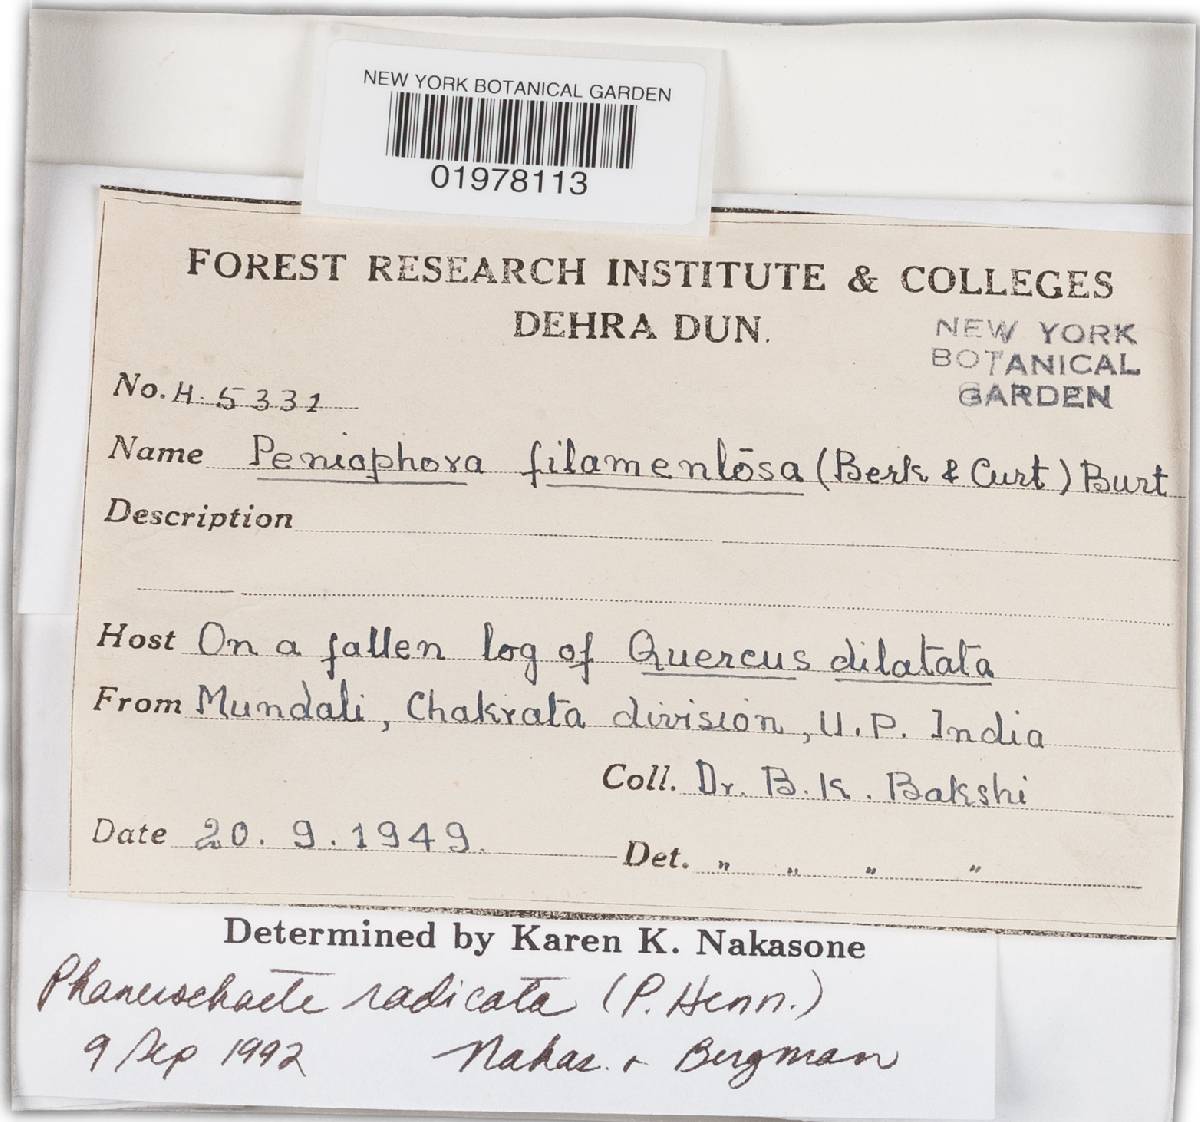 NEW YORK BOTANICAL GARDEN
01978113
FOREST RESEARCH INSTITUTE & COLLEGES
DEHRA DUN.
NEW YORK
BOTANICAL
GARDEN
No. H. 5331
Name Peniophora filamentōsa (Berk & Curt) Burt
Description
Host On a fallen log of Quercus dilatata
From Mundali, Chakrata division, U.P. India
Coll. Dr. B. K. Bakshi
Date 20. 9. 1949.
Det. " " " "
Determined by Karen K. Nakasone
Phanerochaete radicata (P. Henn.)
9 Sep 1992 Nakas. & Bergman